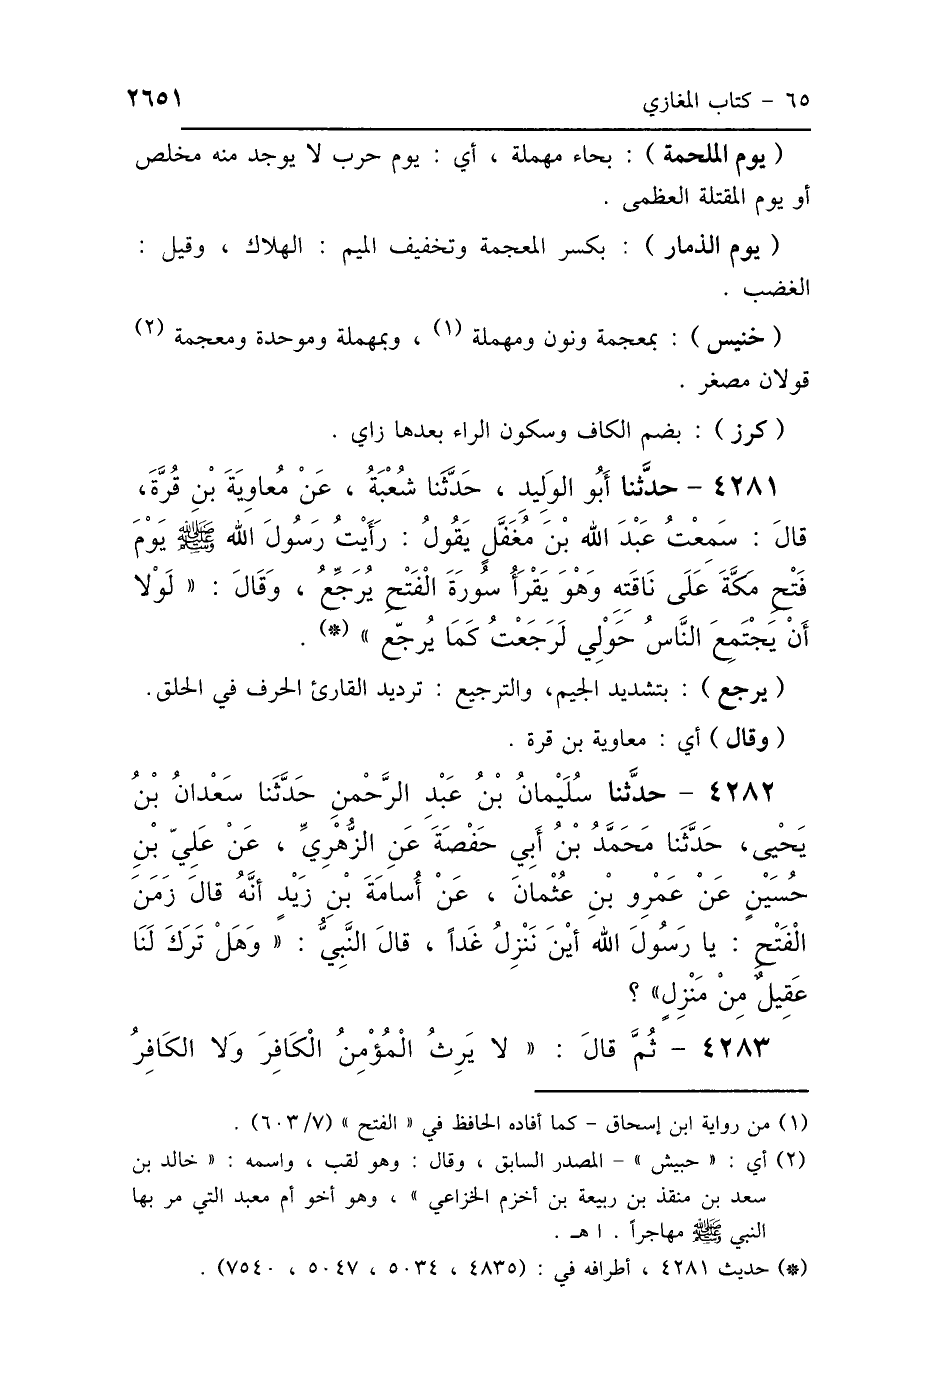 ٦٥ - كتاب المغازي ٢٦٥١
( يوم الملحمة ) : بحاء مهملة ، أي : يوم حرب لا يوجد منه مخلص
أو يوم المقتلة العظمى .
( يوم الذمار ) : بكسر المعجمة وتخفيف الميم : الهلاك ، وقيل :
الغضب .
( خنيس ) : بمعجمة ونون ومهملة (١) ، وبمهملة وموحدة ومعجمة (٢)
قولان مصغر .
( كرز ) : بضم الكاف وسكون الراء بعدها زاي .
٤٢٨١ - حدَّثنا أَبُو الوَلِيدِ ، حَدَّثَنا شُعْبَةُ ، عَنْ مُعاوِيَةَ بْنِ قُرَّةَ،
قالَ : سَمِعْتُ عَبْدَ الله بْنَ مُغَفَّلٍ يَقُولُ : رَأَيْتُ رَسُولَ الله ﷺ يَوْمَ
فَتْحِ مَكَّةَ عَلَى نَاقَتِهِ وَهْوَ يَقْرَأُ سُورَةَ الْفَتْحِ يُرَجِّعُ ، وَقَالَ : « لَوْلا
أَنْ يَجْتَمِعَ النَّاسُ حَوْلِي لَرَجَعْتُ كَمَا يُرجّع » (*) .
( يرجع ) : بتشديد الجيم، والترجيع : ترديد القارئ الحرف في الحلق.
( وقال ) أي : معاوية بن قرة .
٤٢٨٢ - حدَّثنا سُلَيْمانُ بْنُ عَبْدِ الرَّحْمنِ حَدَّثَنا سَعْدانُ بْنُ
يَحْيى، حَدَّثَنا مَحَمَّدُ بْنُ أَبِي حَفْصَةَ عَنِ الزُّهْرِيِّ ، عَنْ عَلِيّ بْنِ
حُسَيْنٍ عَنْ عَمْرِو بْنِ عُثْمانَ ، عَنْ أُسامَةَ بْنِ زَيْدٍ أَنَّهُ قالَ زَمَنَ
الْفَتْحِ : يا رَسُولَ الله أَيْنَ نَنْزِلُ غَداً ، قالَ النَّبِيُّ : « وَهَلْ تَرَكَ لَنَا
عَقِيلٌ مِنْ مَنْزِلٍ» ؟
٤٢٨٣ - ثُمَّ قالَ : « لا يَرِثُ الْمُؤْمِنُ الْكَافِرَ وَلا الكَافِرُ
(١) من رواية ابن إسحاق - كما أفاده الحافظ في « الفتح » (٦٠٣/٧) .
(٢) أي : « حبيش » - المصدر السابق ، وقال : وهو لقب ، واسمه : « خالد بن
سعد بن منقذ بن ربيعة بن أخزم الخزاعي » ، وهو أخو أم معبد التي مر بها
النبي ﷺ مهاجراً . ا هـ .
(*) حديث ٤٢٨١ ، أطرافه في : (٤٨٣٥ ، ٥٠٣٤ ، ٥٠٤٧ ، ٧٥٤٠) .